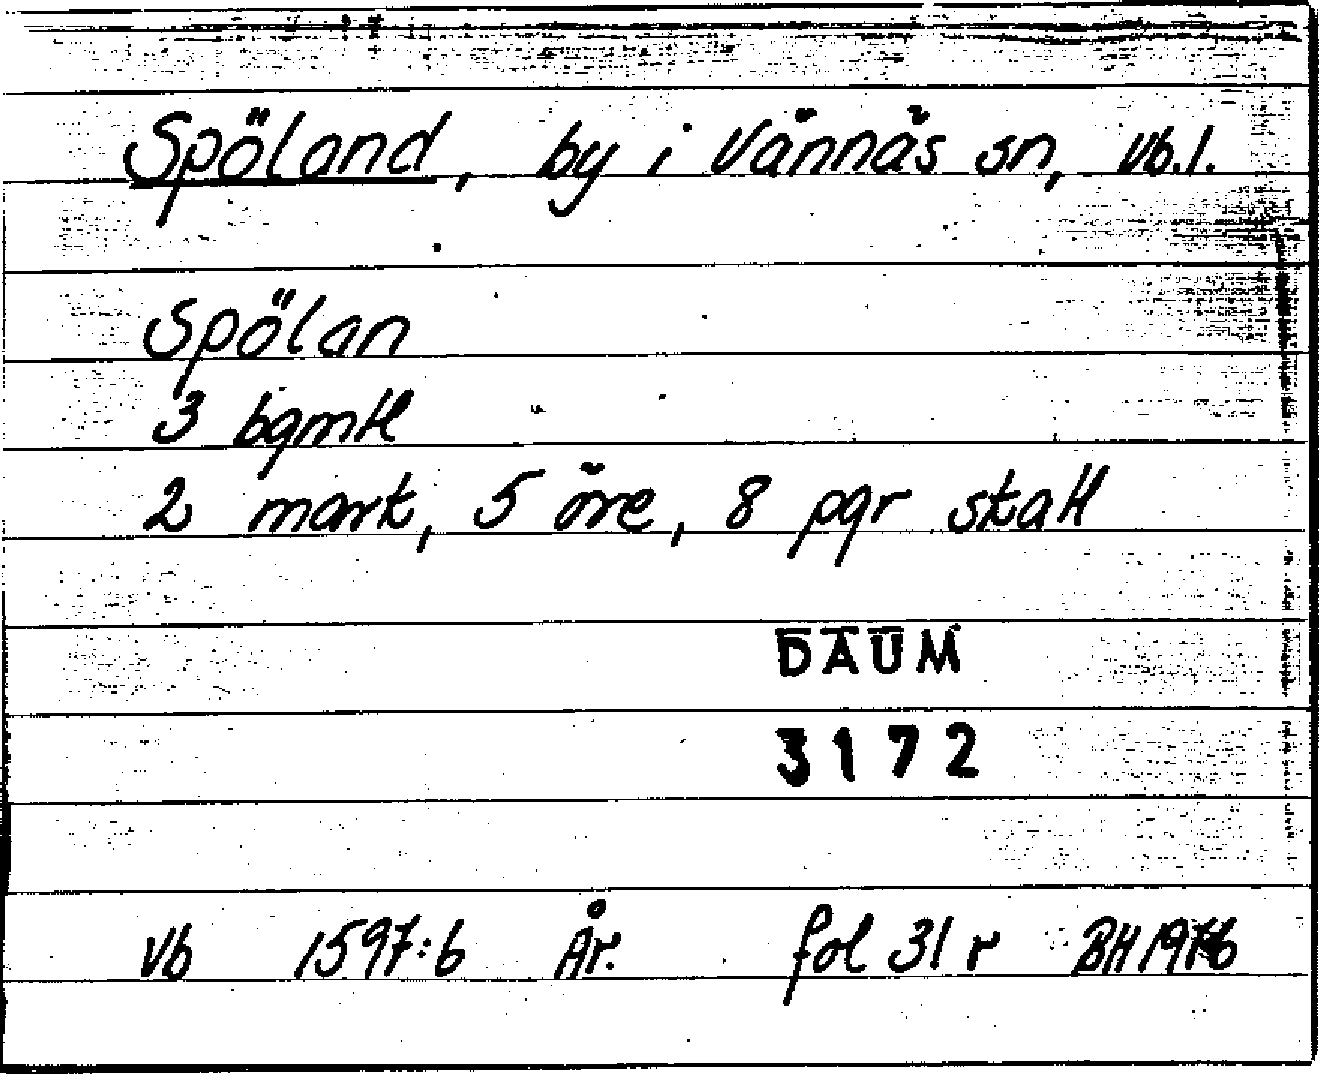 Spöland, by i Vännäs sn, Vb.l.
Spölan
3 bgmtl
2 mark, 5 öre, 8 pgr skatt
DAUM
3172
Vb 1597:6 År. fol 31 r BH 1976